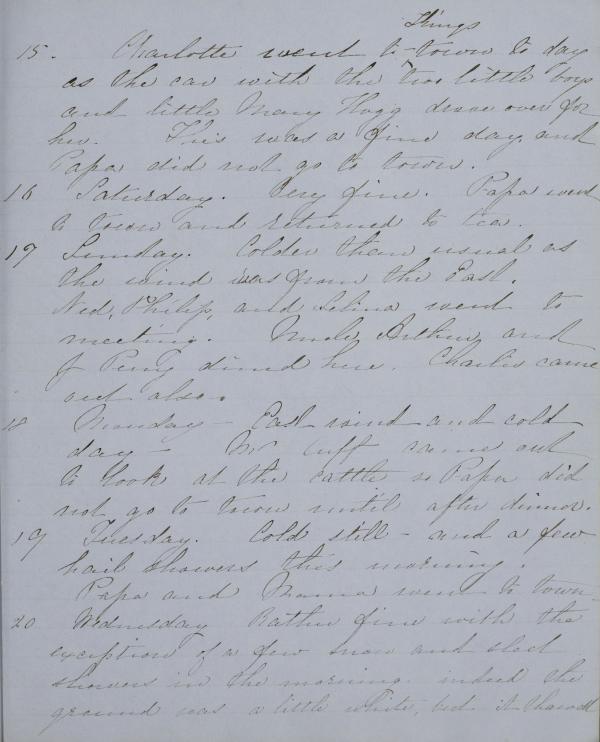 Things
15. Charlotte went to town to day
as the car with the two little boys
and little Mary Hogg drove over for
her. This was a fine day and
Papa did not go to town.
16 Saturday. Very fine. Papa went
to town and returned to tea.
17 Sunday. Colder than usual as
the wind was from the East.
Ned, Philip, and Selina went to
meeting. Uncle Arthur and
J Penny dined here. Charlie came
out also.
18 Monday - East wind and cold
day - Mr Cuff came out
to look at the cattle so Papa did
not go to town until after dinner.
19 Tuesday. Cold still - and a few
hail showers this morning.
Papa and Mama went to town
20 Wednesday Rather fine with the
exception of a few snow and sleet
showers in the morning. indeed the
ground was a little white, but it thawed